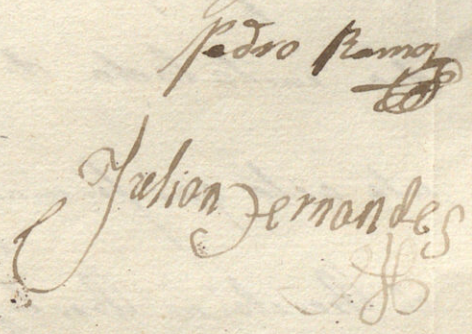 Pedro Ramoz
Julian Fernandes